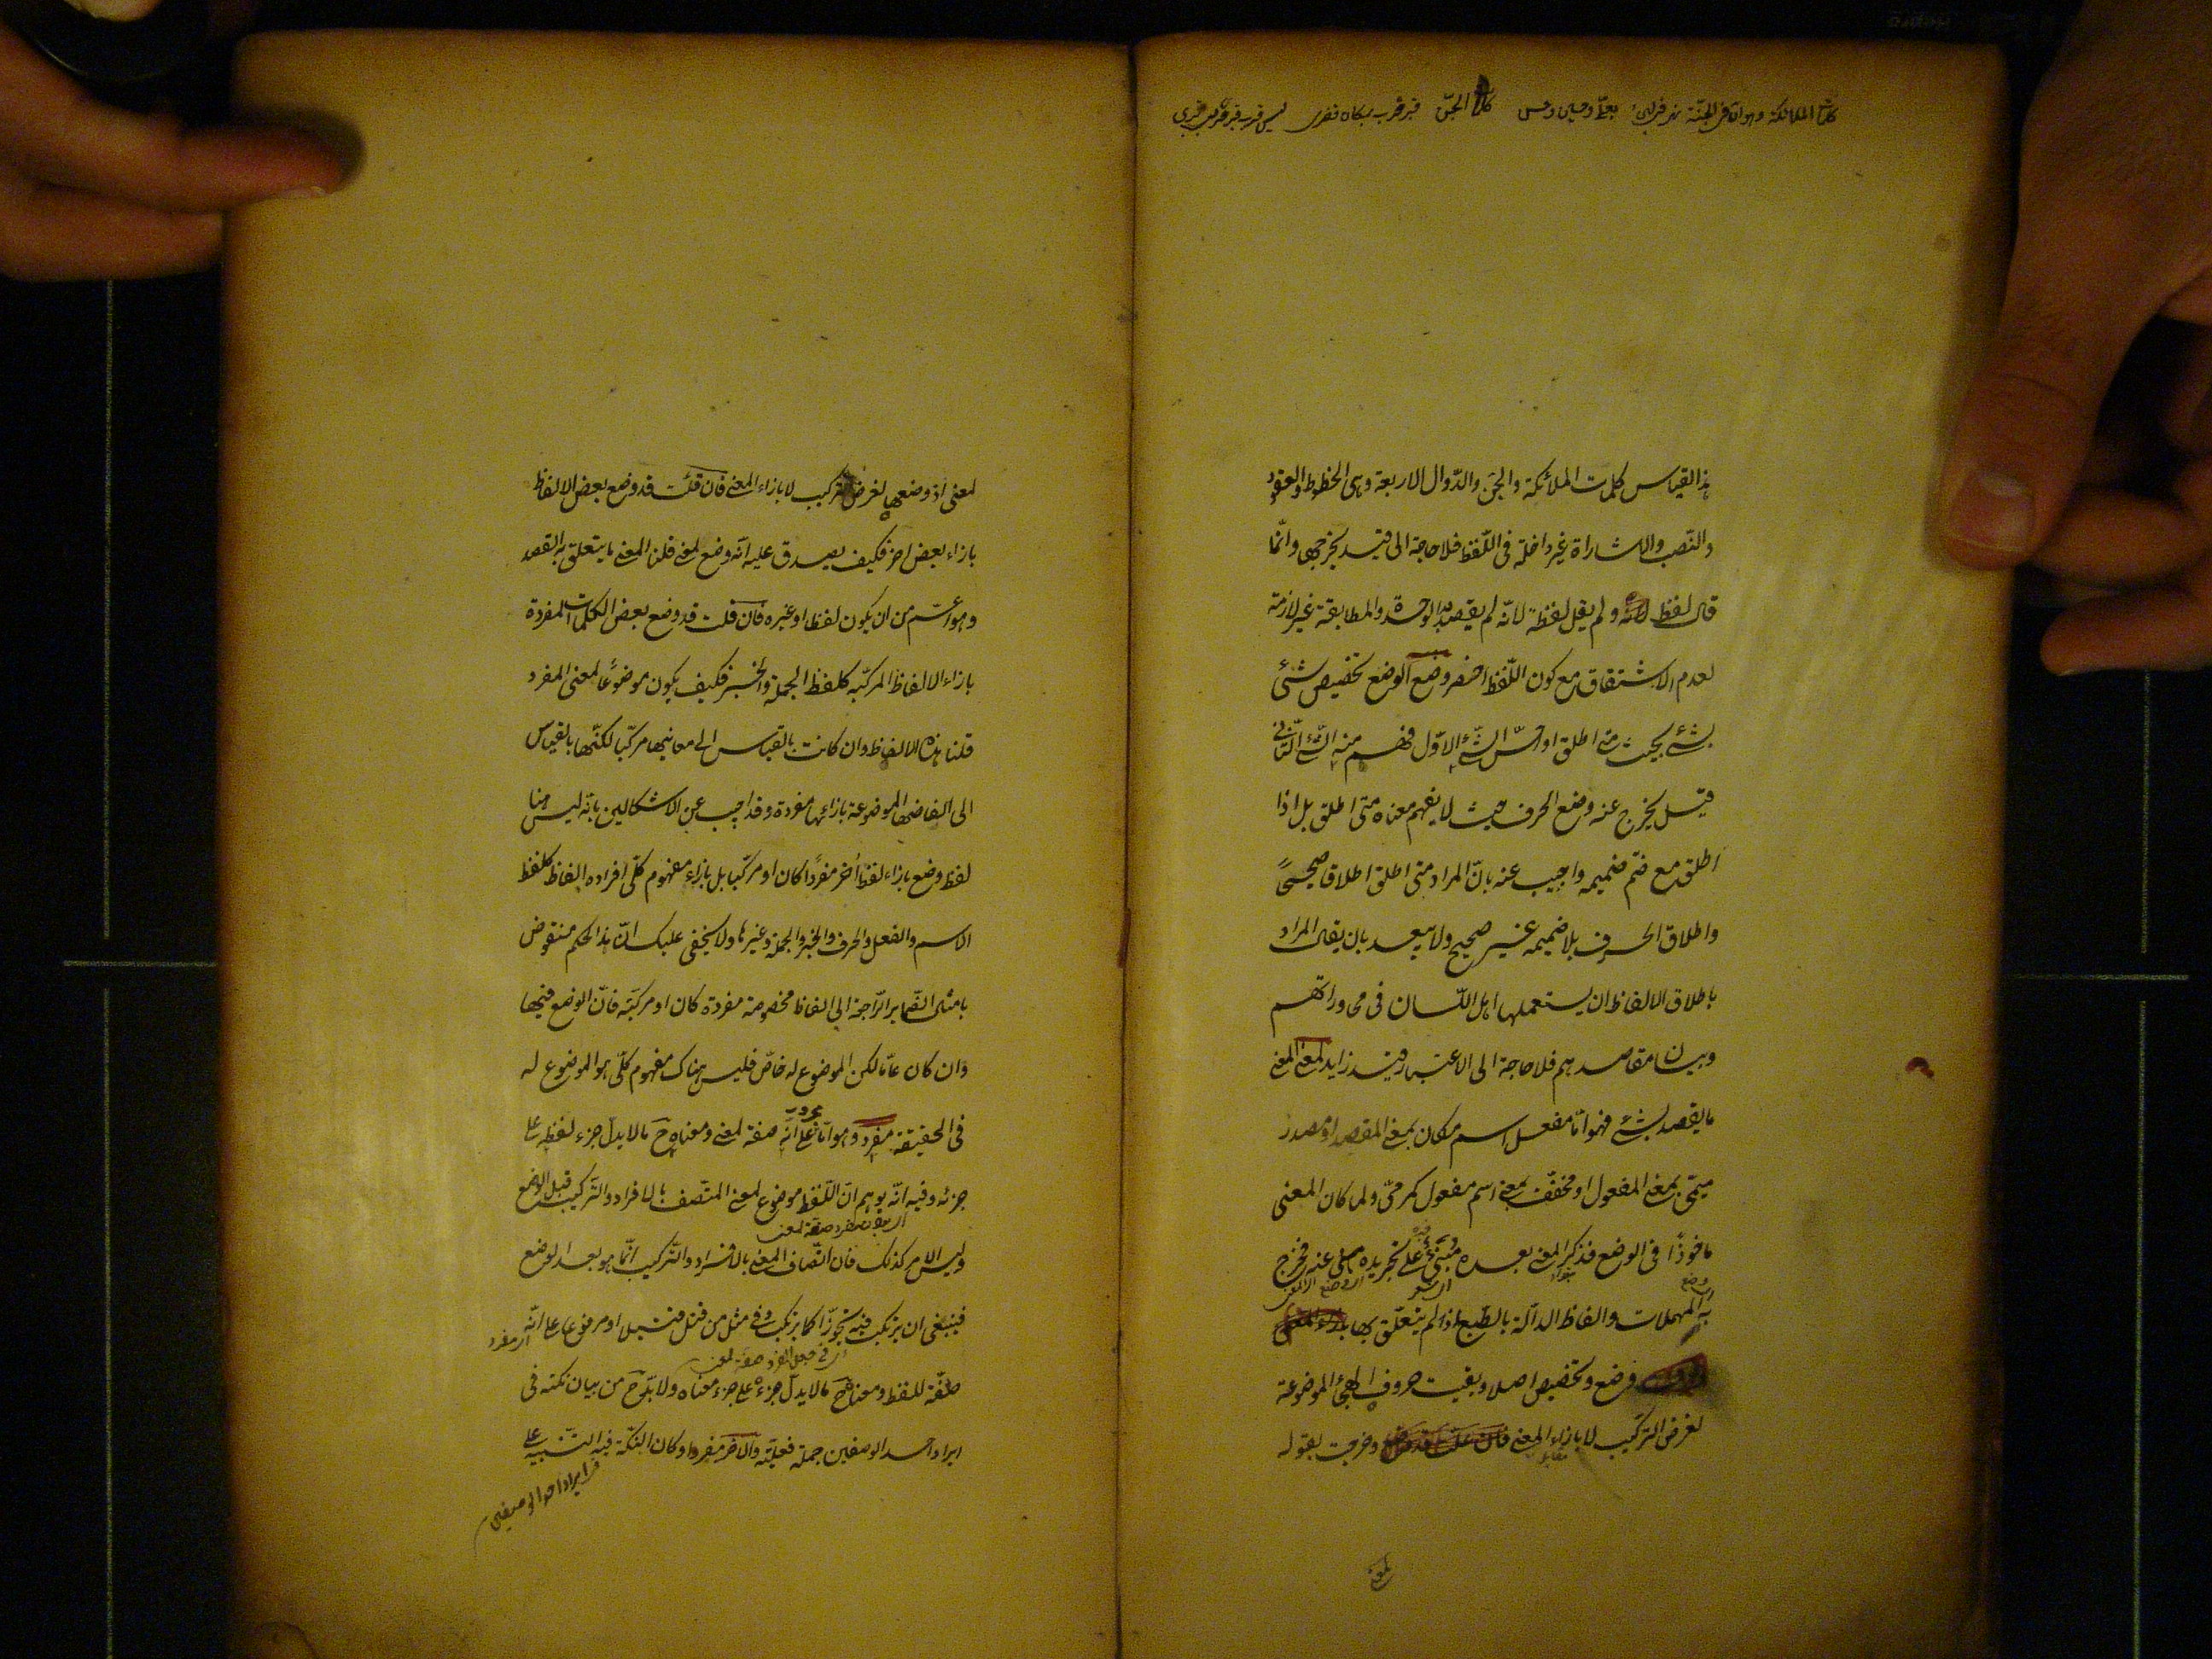 كلمات الملائكة وهو ان فى الجنة نهر فى لبن كلمات الجن قبر حرب بمكان قفر ليس قرب قبر حرب قبر
هذا القياس كلمات الملائكة والجن والدوال الاربعة وهى الخطوط والعقود
والنصب والاشاراة غير داخلة فى اللفظ فلا حاجة الى قيد يخرجها وانما
قال لفظ ولم يقل لفظة لانه لم يقصد الوحدة والمطابقة غير لازمة
لعدم الاشتقاق مع كون اللفظ اخصر وضع الوضع تخصيص شئ
بشئ بحيث متى اطلق او احس الشئ الاول فهم منه الشئ الثانى
قيل يخرج عنه وضع الحرف حيث لا يفهم معناه متى اطلق بل اذا
اطلق مع ضم ضميمه واجيب عنه بان المراد متى اطلق اطلاقا صحيحًا
واطلاق الحرف بلا ضميمه غير صحيح ولا يبعد بان يقال المراد
باطلاق الالفاظ ان يستعملها اهل اللسان فى محاوراتهم
وبيان مقاصدهم فلا حاجة الى الاعتبار قيد زايد لمعنى المعنى
ما يقصد بشئ فهو اما مفعل اسم مكان بمعنى المقصد او مصدر
ميمى بمعنى المفعول او مخفف بمعنى اسم مفعول كمرمى ولما كان المعنى
ماخوذًا فى الوضع فذكر المعنى بعده مبنى على تجريده عنه فخرج
به المهملات والفاظ الدالة بالطبع اذ لم يتعلق بها
وضع وتخصيص اصلا وبقيت حروف الهجئ الموضوعة
لغرض التركيب لا بازاء المعنى وخرجت بقوله
لمعنى
لمعنى اذ وضعها لغرض التركيب لا بازاء المعنى فان قلت قد وضع بعض الالفاظ
بازاء بعض اخر فكيف يصدق عليه انه وضع لمعنى قلنا المعنى ما يتعلق به القصد
وهو اعم من ان يكون لفظا او غيره فان قلت قد وضع بعض الكلمات المفردة
بازاء الالفاظ المركبه كلفظ الجملة والخبر فكيف يكون موضوعًا لمعنى المفرد
قلنا هذه الالفاظ وان كانت بالقياس الى معانيها مركبا لكنها بالقياس
الى الفاضها الموضوعة بازائها مفردة وقد اجيب عن الاشكالين بانه ليس هنا
لفظ وضع بازاء لفظ اخر مفردًا كان او مركبا بل بازاء مفهوم كلى افراده الفاظ كلفظ
الاسم والفعل والحرف والخبر والجملة وغيرها ولا يخفى عليك ان هذا الحكم منقوض
بامثال الضماير الراجعة الى الفاظ مخصوصة مفردة كان او مركبته فان الوضع فيها
وان كان عاما لكن الموضوع له خاص فليس هناك مفهوم كلى هو الموضوع له
فى الحقيقة مفرد وهو اما مجرور على انه صفة لمعنى ومعناه ح ما لا يدل جزء لفظه على
جزئه وفيه انه يوهم ان اللفظ موضوع لمعنى المتصف بالافراد والتركيب قبل الوضع
وليس الامر كذلك فان اتصاف المعنى بالافراد والتركيب انما هو بعد الوضع
فينبغى ان يرتكب فيه تجوزا كما يرتكب فى مثل من قتل قتيلا او مرفوع على انه
صفة للفظ ومعناه ح ما لا يدل جزءه على جزء معناه ولا بد ح من بيان نكته فى
ايراد احد الوصفين جملة فعلية والاخر مفردا وكان النكتة فيه التنبيه على
ايراد احد الوصفين